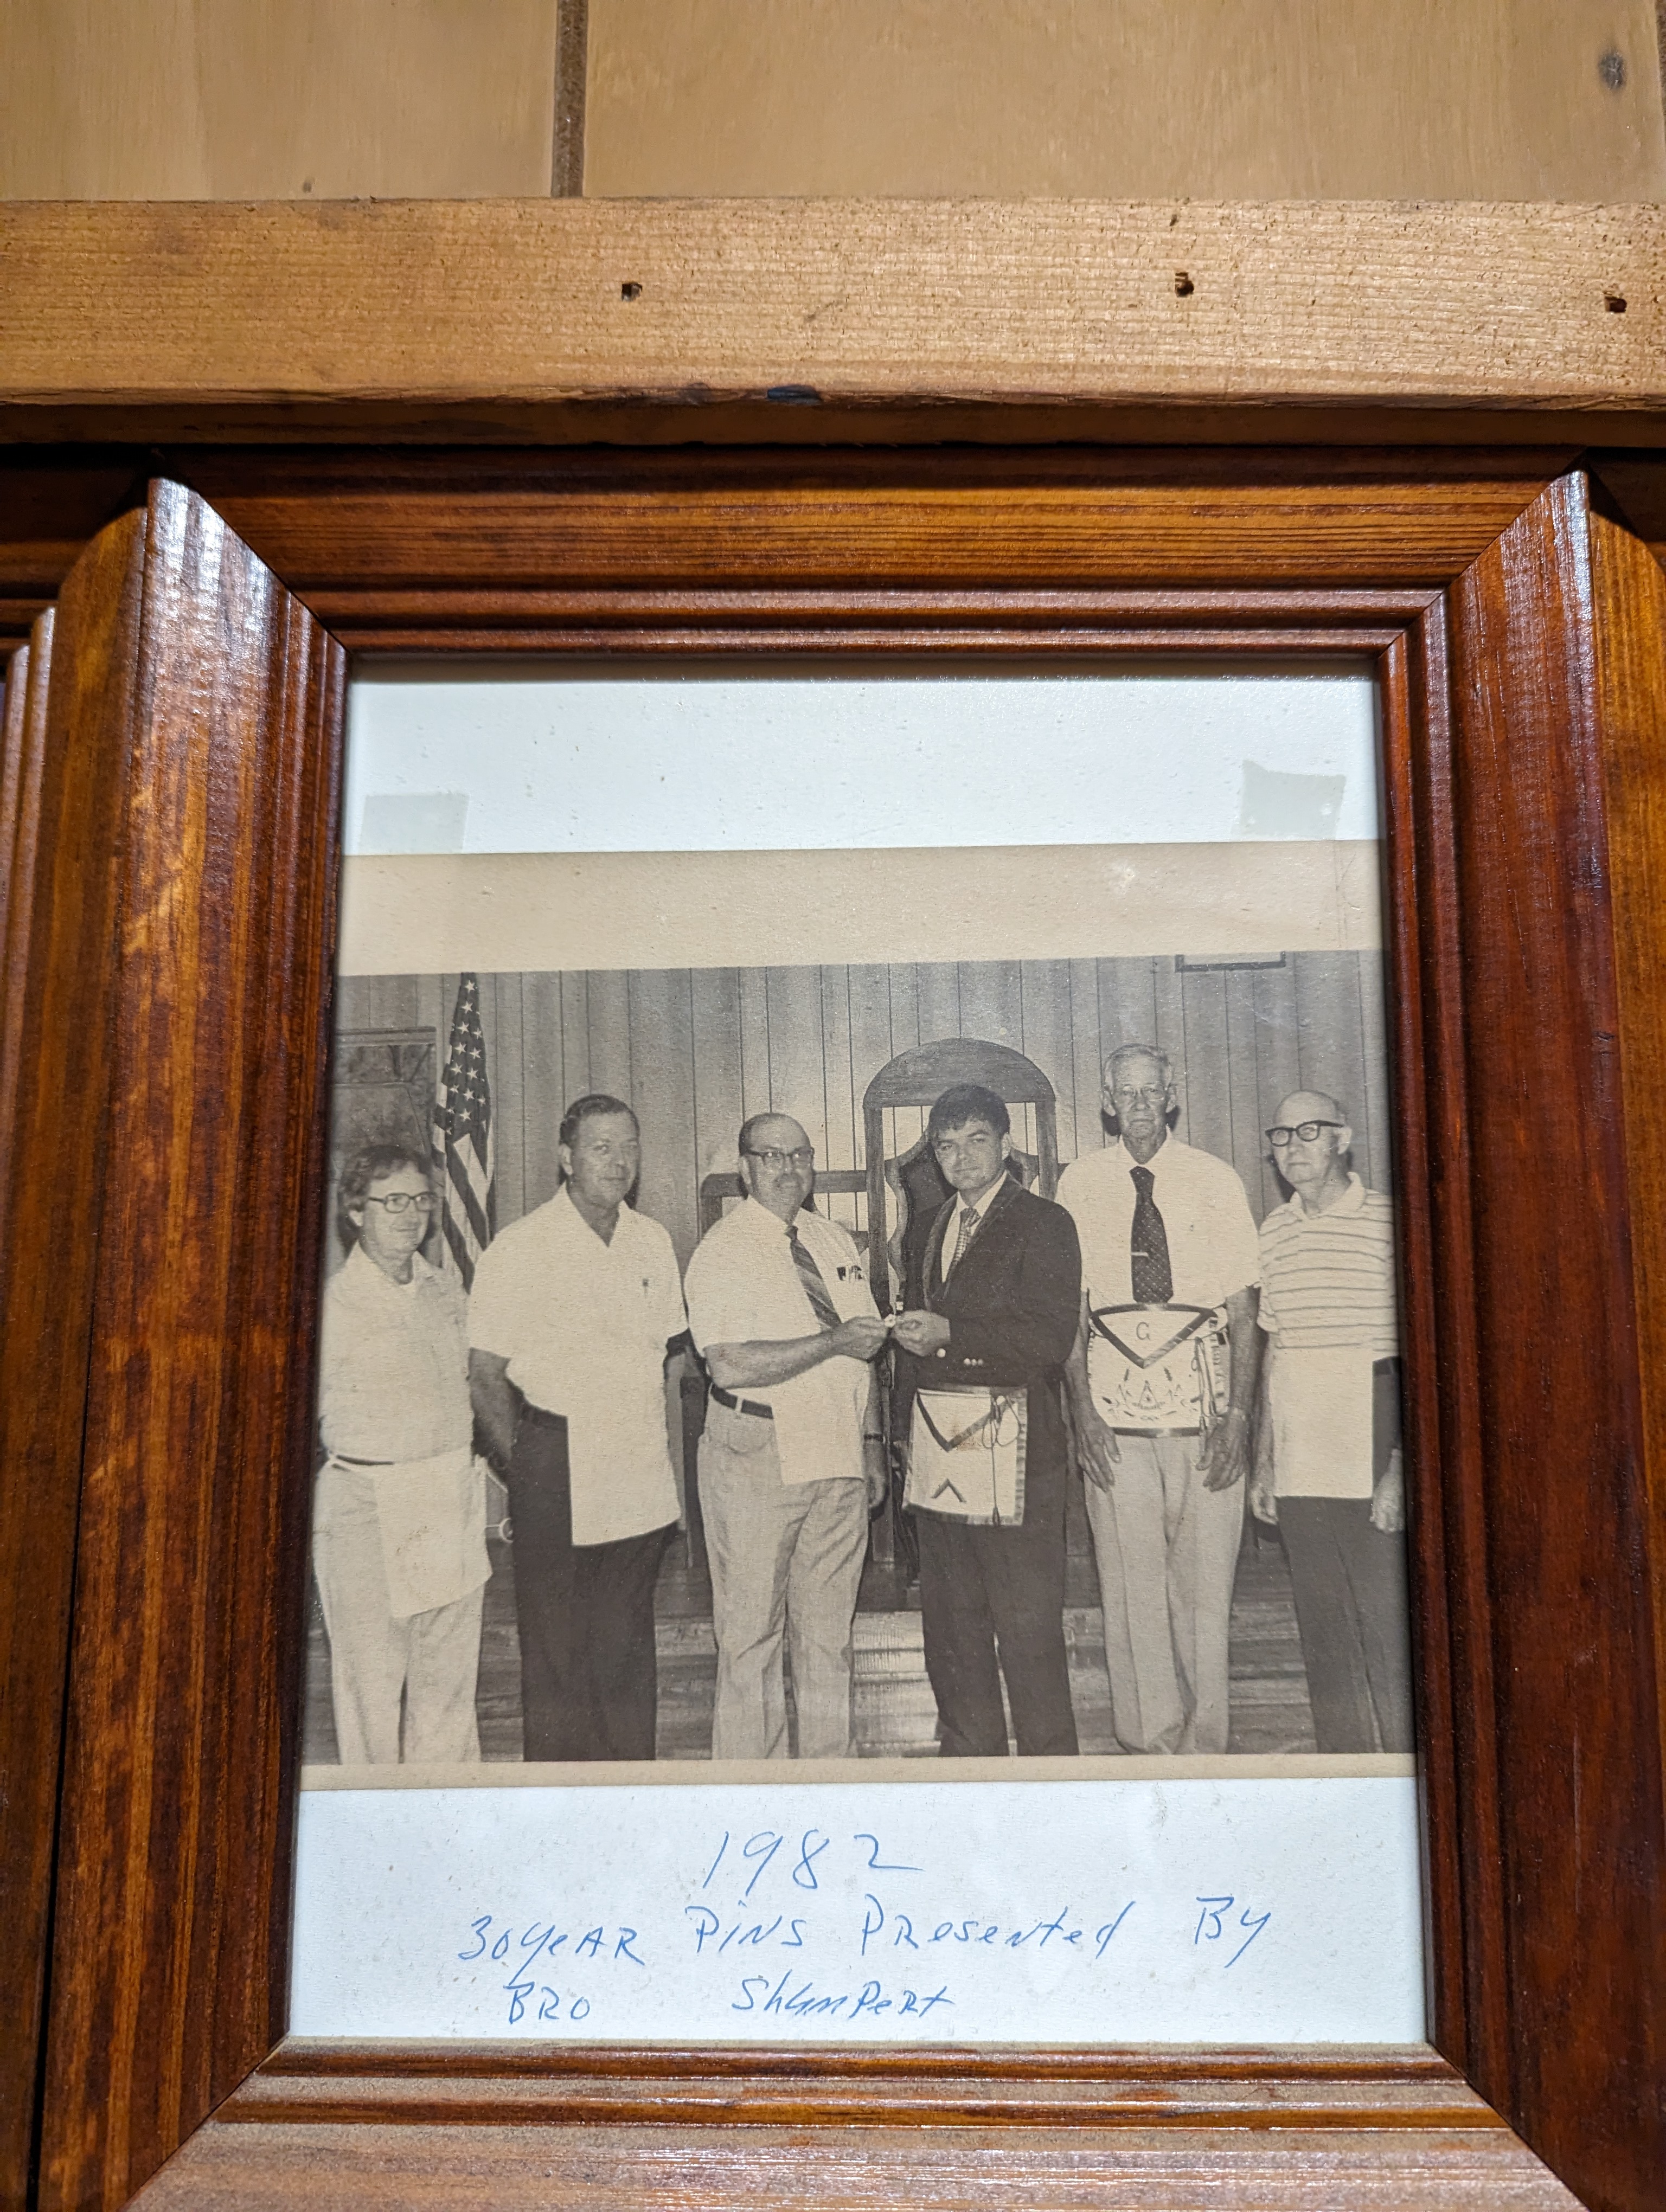 G
1982
30 YeAR PiNS PResented By
BRO ShumPeRt